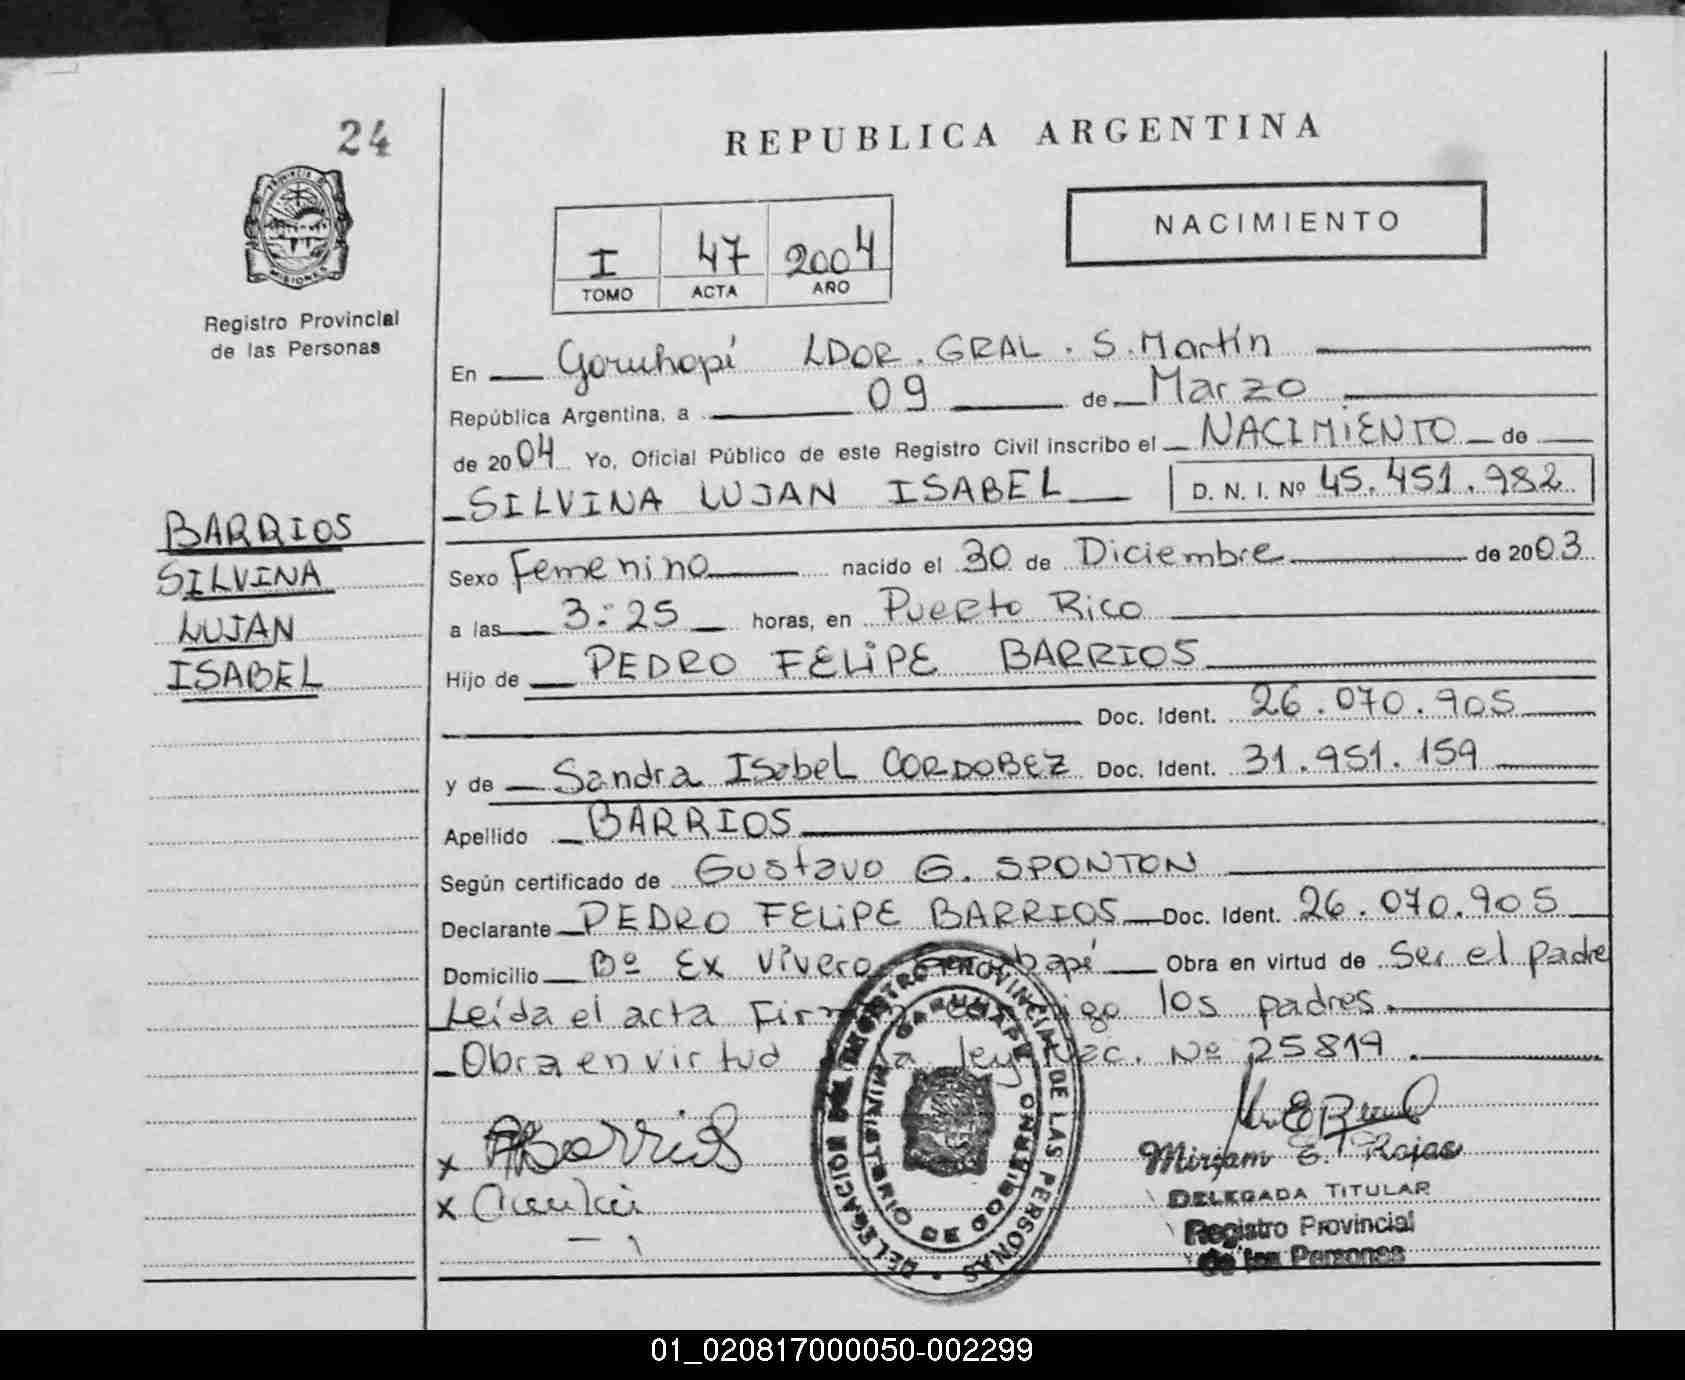 24
PROVINCIA DE
MISIONES
Registro Provincial
de las Personas
BARRIOS
SILVINA
LUJAN
ISABEL
REPUBLICA ARGENTINA
I 47 2004
TOMO ACTA AÑO
NACIMIENTO
En Garuhapí LDOR. GRAL. S. Martín
República Argentina, a 09 de Marzo
de 2004 Yo, Oficial Público de este Registro Civil inscribo el NACIMIENTO de
SILVINA LUJAN ISABEL D. N. I. Nº 45.451.982
Sexo Femenino nacido el 30 de Diciembre de 2003
a las 3:25 horas, en Puerto Rico
Hijo de PEDRO FELIPE BARRIOS
Doc. Ident. 26.070.905
y de Sandra Isabel CORDOBEZ Doc. Ident. 31.951.159
Apellido BARRIOS
Según certificado de Gustavo G. SPONTON
Declarante PEDRO FELIPE BARRIOS Doc. Ident. 26.070.905
Domicilio Bº Ex Vivero Garuhapí Obra en virtud de Ser el padre
Leída el acta Firman conmigo los padres.
Obra en virtud a la ley Nac. Nº 25819.
x Barrios
x
DELEGACION DEL REGISTRO PROVINCIAL DE LAS PERSONAS
GARUHAPE
Miriam E. Rojas
DELEGADA TITULAR
Registro Provincial
de las Personas
01_020817000050-002299